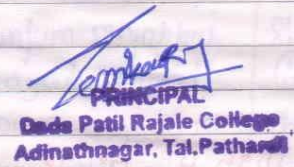 PRINCIPAL
Dada Patil Rajale College
Adinathnagar, Tal.Pathardi